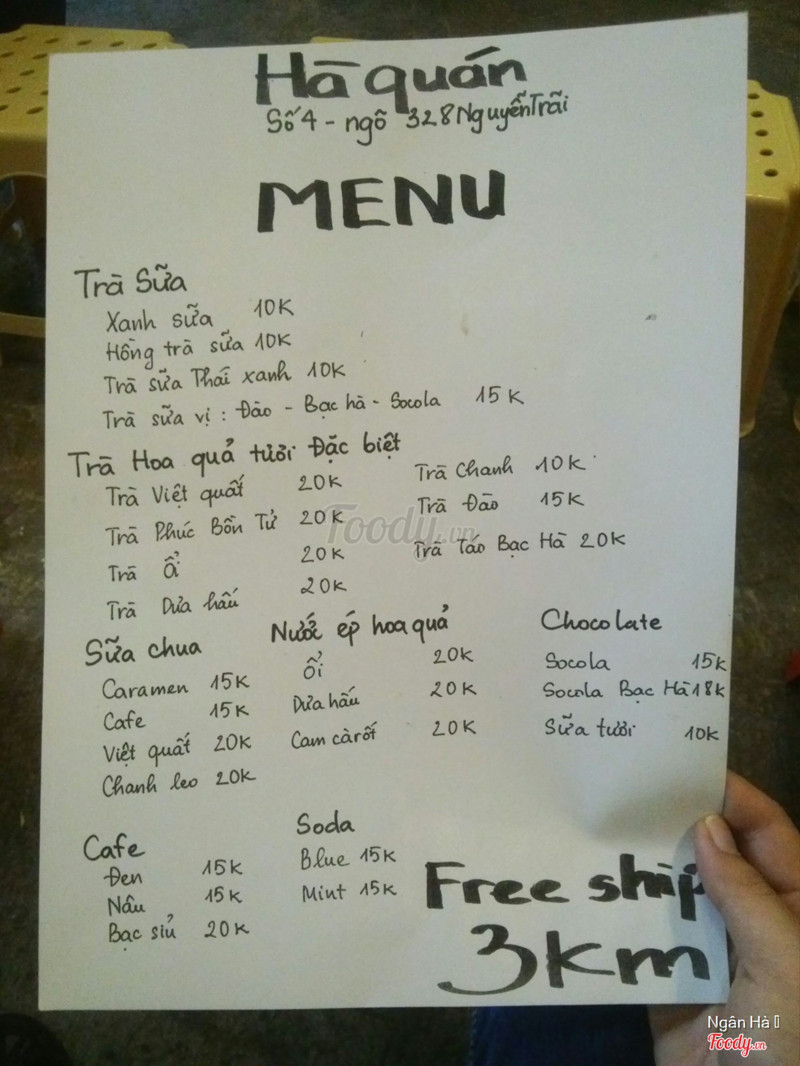 Hà quán
Số 4 - ngõ 328 Nguyễn Trãi
MENU
Trà Sữa
Xanh sữa 10K
Hồng trà sữa 10K
Trà sữa Thái xanh 10K
Trà sữa vị : Đào - Bạc hà - Socola 15K
Trà Hoa quả tươi Đặc biệt
Trà Việt quất 20K
Trà Phúc Bồn Tử 20K
Trà Ổi 20K
Trà Dưa hấu 20K
Trà Chanh 10K
Trà Đào 15K
Trà Táo Bạc Hà 20K
Foody.vn
Sữa chua
Caramen 15K
Cafe 15K
Việt quất 20K
Chanh leo 20K
Nước ép hoa quả
Ổi 20K
Dưa hấu 20K
Cam cà rốt 20K
Chocolate
Socola 15K
Socola Bạc Hà 18K
Sữa tươi 10K
Cafe
Đen 15K
Nâu 15K
Bạc sỉu 20K
Soda
Blue 15K
Mint 15K
Free ship
3km
Ngân Hà
Foody.vn